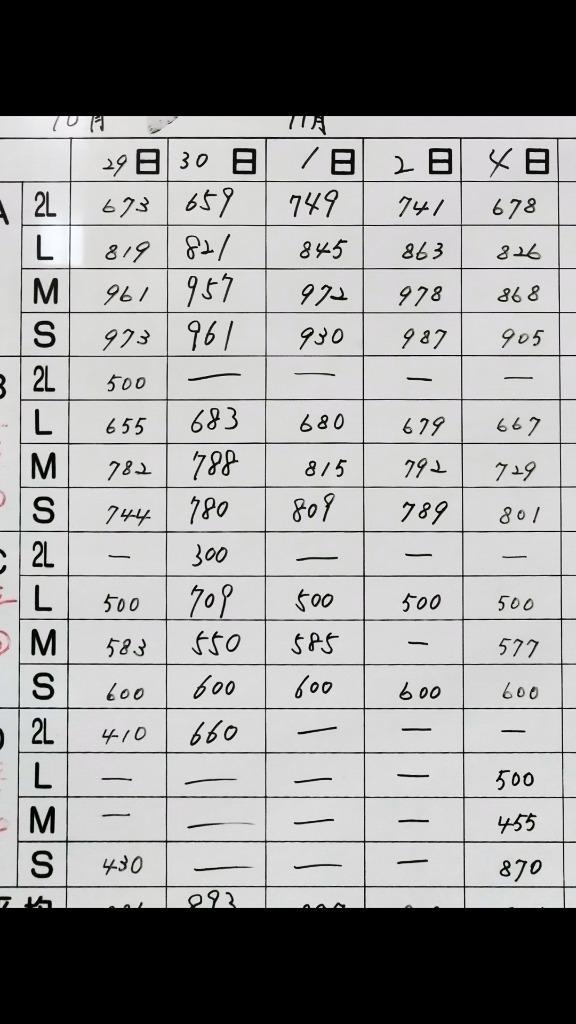 10月 11月
29日 30日 1日 2日 4日
A 2L 673 659 749 741 678
L 819 821 845 863 826
M 961 957 972 978 868
S 973 961 930 987 905
B 2L 500 — — — —
L 655 683 680 679 667
M 782 788 815 792 729
S 744 780 809 789 801
C 2L — 300 — — —
L 500 709 500 500 500
M 583 550 585 — 577
S 600 600 600 600 600
D 2L 410 660 — — —
L — — — — 500
M — — — — 455
S 430 — — — 870
平均 893